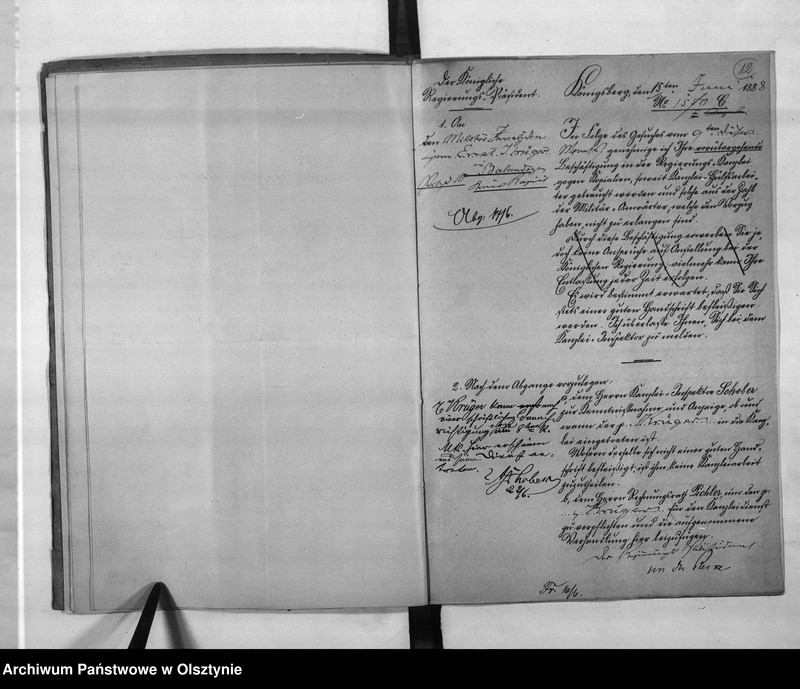 12
Der Königliche
Regierungs-Präsident.
Königsberg, den 15ten Juni 1888
No
1. An
den Militär-Invaliden
Herrn Ernst Krüger
Abg. 17/6.
In Folge des Gesuches vom 9ten dieses
Monats genehmige ich Ihre vorübergehende
Beschäftigung in der Regierungs-Kanzlei
gegen Kopialien, soweit Kanzlei-Hülfsarbei-
ter gebraucht werden und solche aus der Zahl
der Militär-Anwärter, welche den Vorzug
haben, nicht zu erlangen sind.
Durch diese Beschäftigung erwerben Sie je
doch keine Ansprüche auf Anstellung bei der
Königlichen Regierung, vielmehr kann Ihre
Entlassung jeder Zeit erfolgen.
Es wird bestimmt erwartet, daß Sie Sich
stets einer guten Handschrift befleißigen
werden. Ich überlasse Ihnen, Sich bei dem
Kanzlei-Inspektor zu melden.
2. Nach dem Abgange vorzulegen:
a, dem Herrn Kanzlei-Inspektor Schober
zur Kenntnißnahme und Anzeige, ob und
wann der p. Krüger in die Kanz-
lei eingetreten ist.
Wofern derselbe sich nicht einer guten Hand-
schrift befleißigt, ist ihm keine Kanzleiarbeit
zuzutheilen.
b, dem Herrn Rechnungsrath Pichler, um den p.
Krüger für den Kanzleidienst
zu verpflichten und die aufgenommene
Verhandlung hier beizufügen.
Der Regierungs-Präsident
Krüger kann
hier
Dienst an-
treten.
Schober
22/6.
Fr. 16/6.
Archiwum Państwowe w Olsztynie